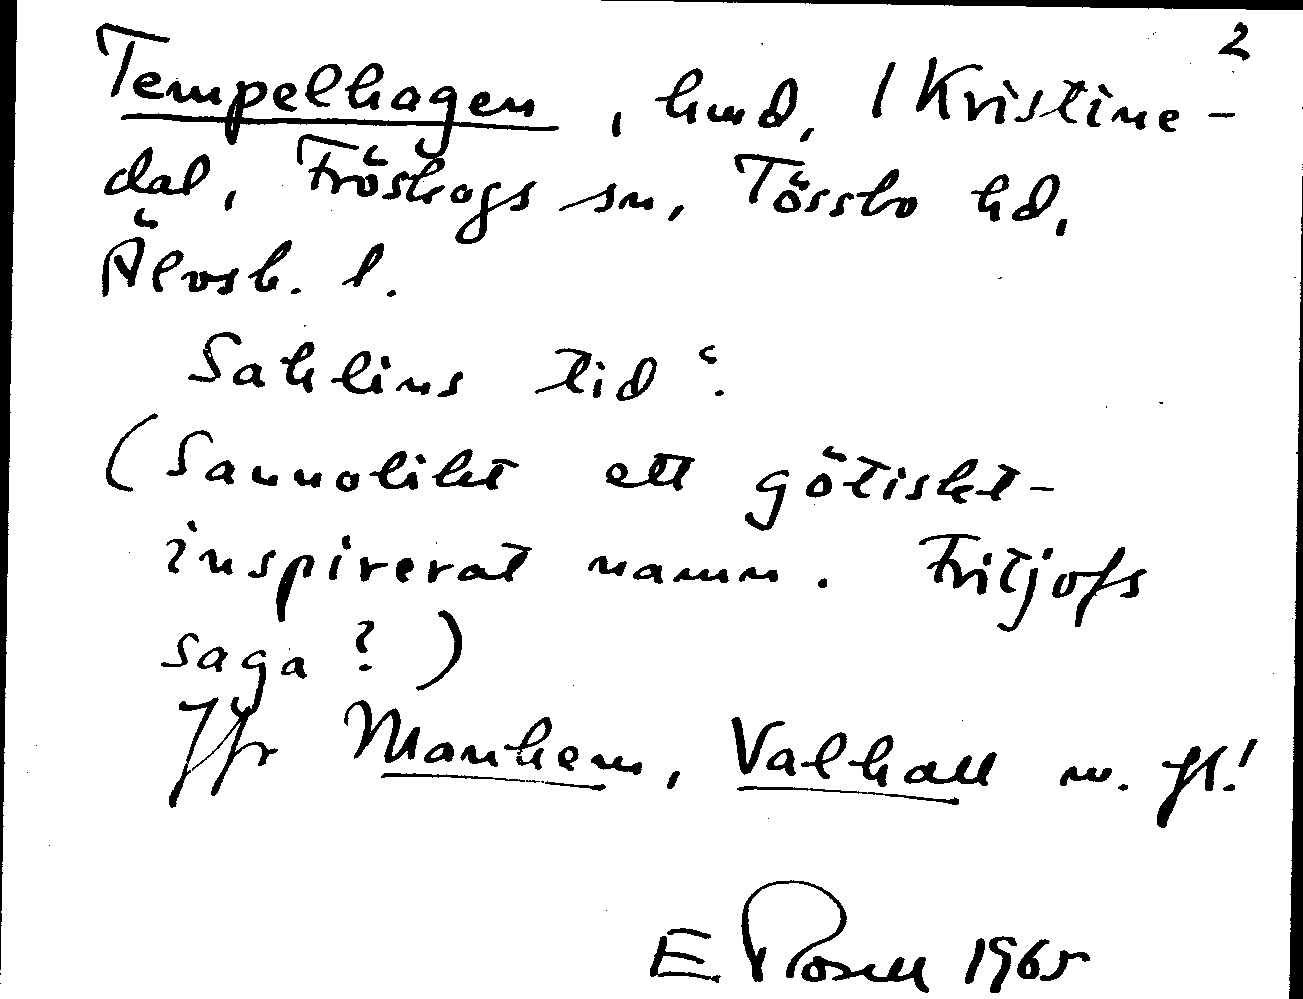 2
Tempelhagen, hmd, / Kristine-
dal, Fröskogs sn, Tössbo hd,
Älvsb. l.
Sahlins tid.
(Sannolikt ett götiskt-
inspirerat namn. Fritjofs
saga?)
Jfr Manhem, Valhall m. fl.!
E Rosell 1965